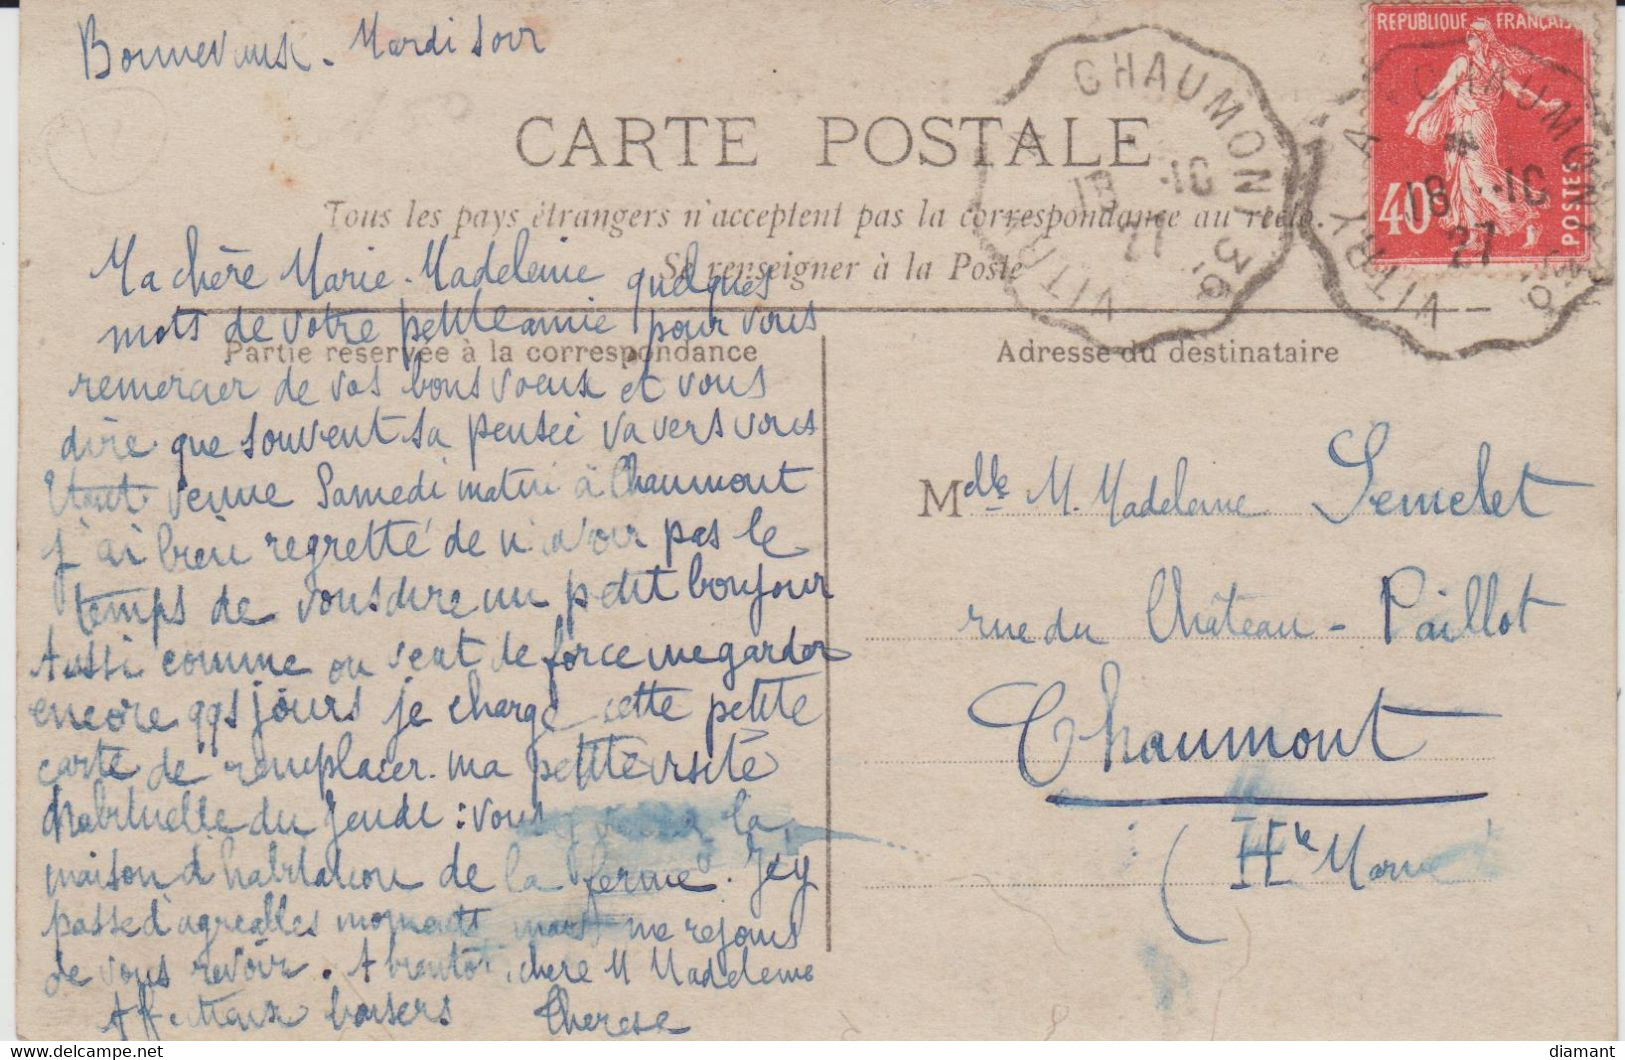 Bonnevaux. Mardi soir
CARTE POSTALE
Tous les pays étrangers n'acceptent pas la correspondance au recto.
Se renseigner à la Poste
Partie réservée à la correspondance
Adresse du destinataire
REPUBLIQUE FRANÇAISE
40
POSTES
CHAUMONT
VITRY
18 -10
27
VITRY A CHAUMONT
18 -10
27
Ma chère Marie-Madeleine quelques
mots de votre petite amie pour vous
remercier de vos bons voeux et vous
dire que souvent sa pensée va vers vous
Etant venue Samedi matin à Chaumont
j'ai bien regretté de n'avoir pas le
temps de vous dire un petit bonjour
Aussi comme on veut de force me garder
encore qqs jours je charge cette petite
carte de remplacer ma petite visite
habituelle du Jeudi : vous la
maison d'habitation de la ferme. J'ey
passe d'agreables moments mais me rejouis
de vous revoir. A bientôt, chere M Madeleine
Affectueux baisers Therese
Mdlle M. Madeleine Semelet
rue du Château-Paillot
Chaumont
(Hte Marne
diamant